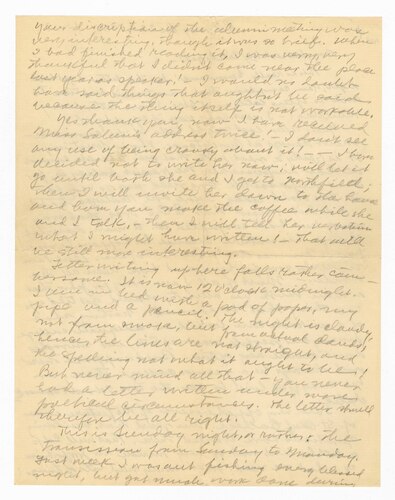 your description of the alumni meeting was
very interesting, though it was so brief. When
I had finished reading it, I was very, very
thankful that I didn't come near the place
last year as speaker! – I would no doubt
have said things that oughtn't be said
because the thing itself is not workable.
Yes thank you, now I have received
Miss address twice! – I don't see
any use of being crowdy about it! – – I have
decided not to write her now, will let it
go until both she and I get to Northfield;
then I will invite her down to the house
and have you make the coffee while she
and I talk, – then I will tell her verbatim
what I might have written! – That will
be still more interesting.
Letter writing up here falls rather cum-
bersome. It is now 12 o'clock midnight.
I lie in bed with a pad of paper, my
pipe and a pencil. The night is cloudy,
not from smoke, but from actual clouds;
hence, the lines are not straight, and
the spelling not what it ought to be!
But never mind all that – you never
had a letter written under more
circumstances. The letter shall
therefore be all right.
This is Sunday night, or rather: the
transition from Sunday to Monday.
Last week I was out fishing every blessed
night, but got much work done during